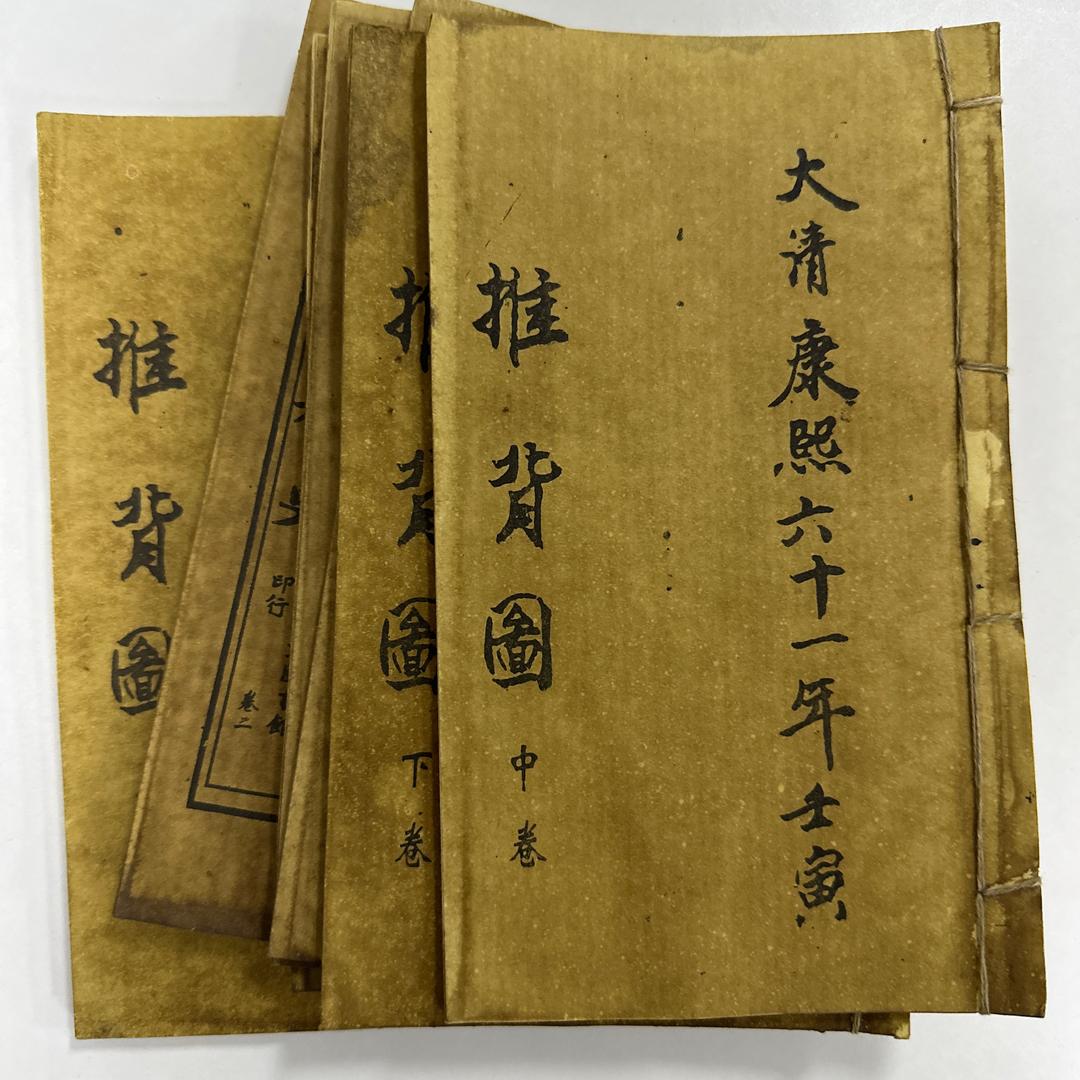 大清康熙六十一年壬寅
推背圖 中卷
推背圖 下卷
印行
卷二
推背圖